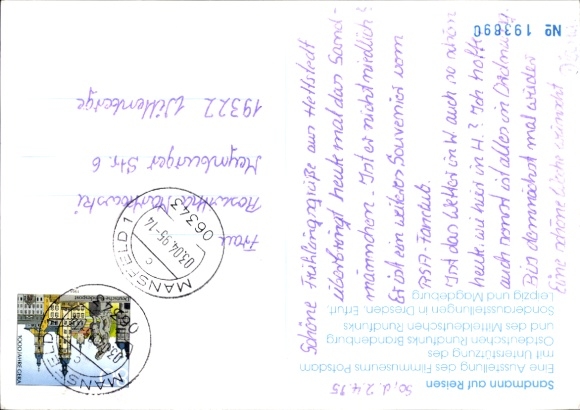 Sandmann auf Reisen
Eine Ausstellung des Filmmuseums Potsdam
mit Unterstützung des
Ostdeutschen Rundfunks Brandenburg
und des Mitteldeutschen Rundfunks
Sonderausstellungen in Dresden, Erfurt,
Leipzig und Magdeburg
No 193890
So, d. 2.4.95
Schöne Frühlingsgrüße aus Hettstedt
überbringt heute mal das Sand-
männchen. Ist er nicht niedlich?
Er ist ein weiteres Souvenier vom
Fanclub.
Ist das Wetter in W. auch so schön
heute wie hier in H.? Ich hoffe
auch sonst ist alles in Ordnung.
Bis demnächst mal wieder
Eine schöne Woche wünscht
Frau
Str. 6
19322 Wittenberge
MANSFELD 1
03.04.95-14
06343
MANSFELD
Deutsche Bundespost
1000 JAHRE GERA